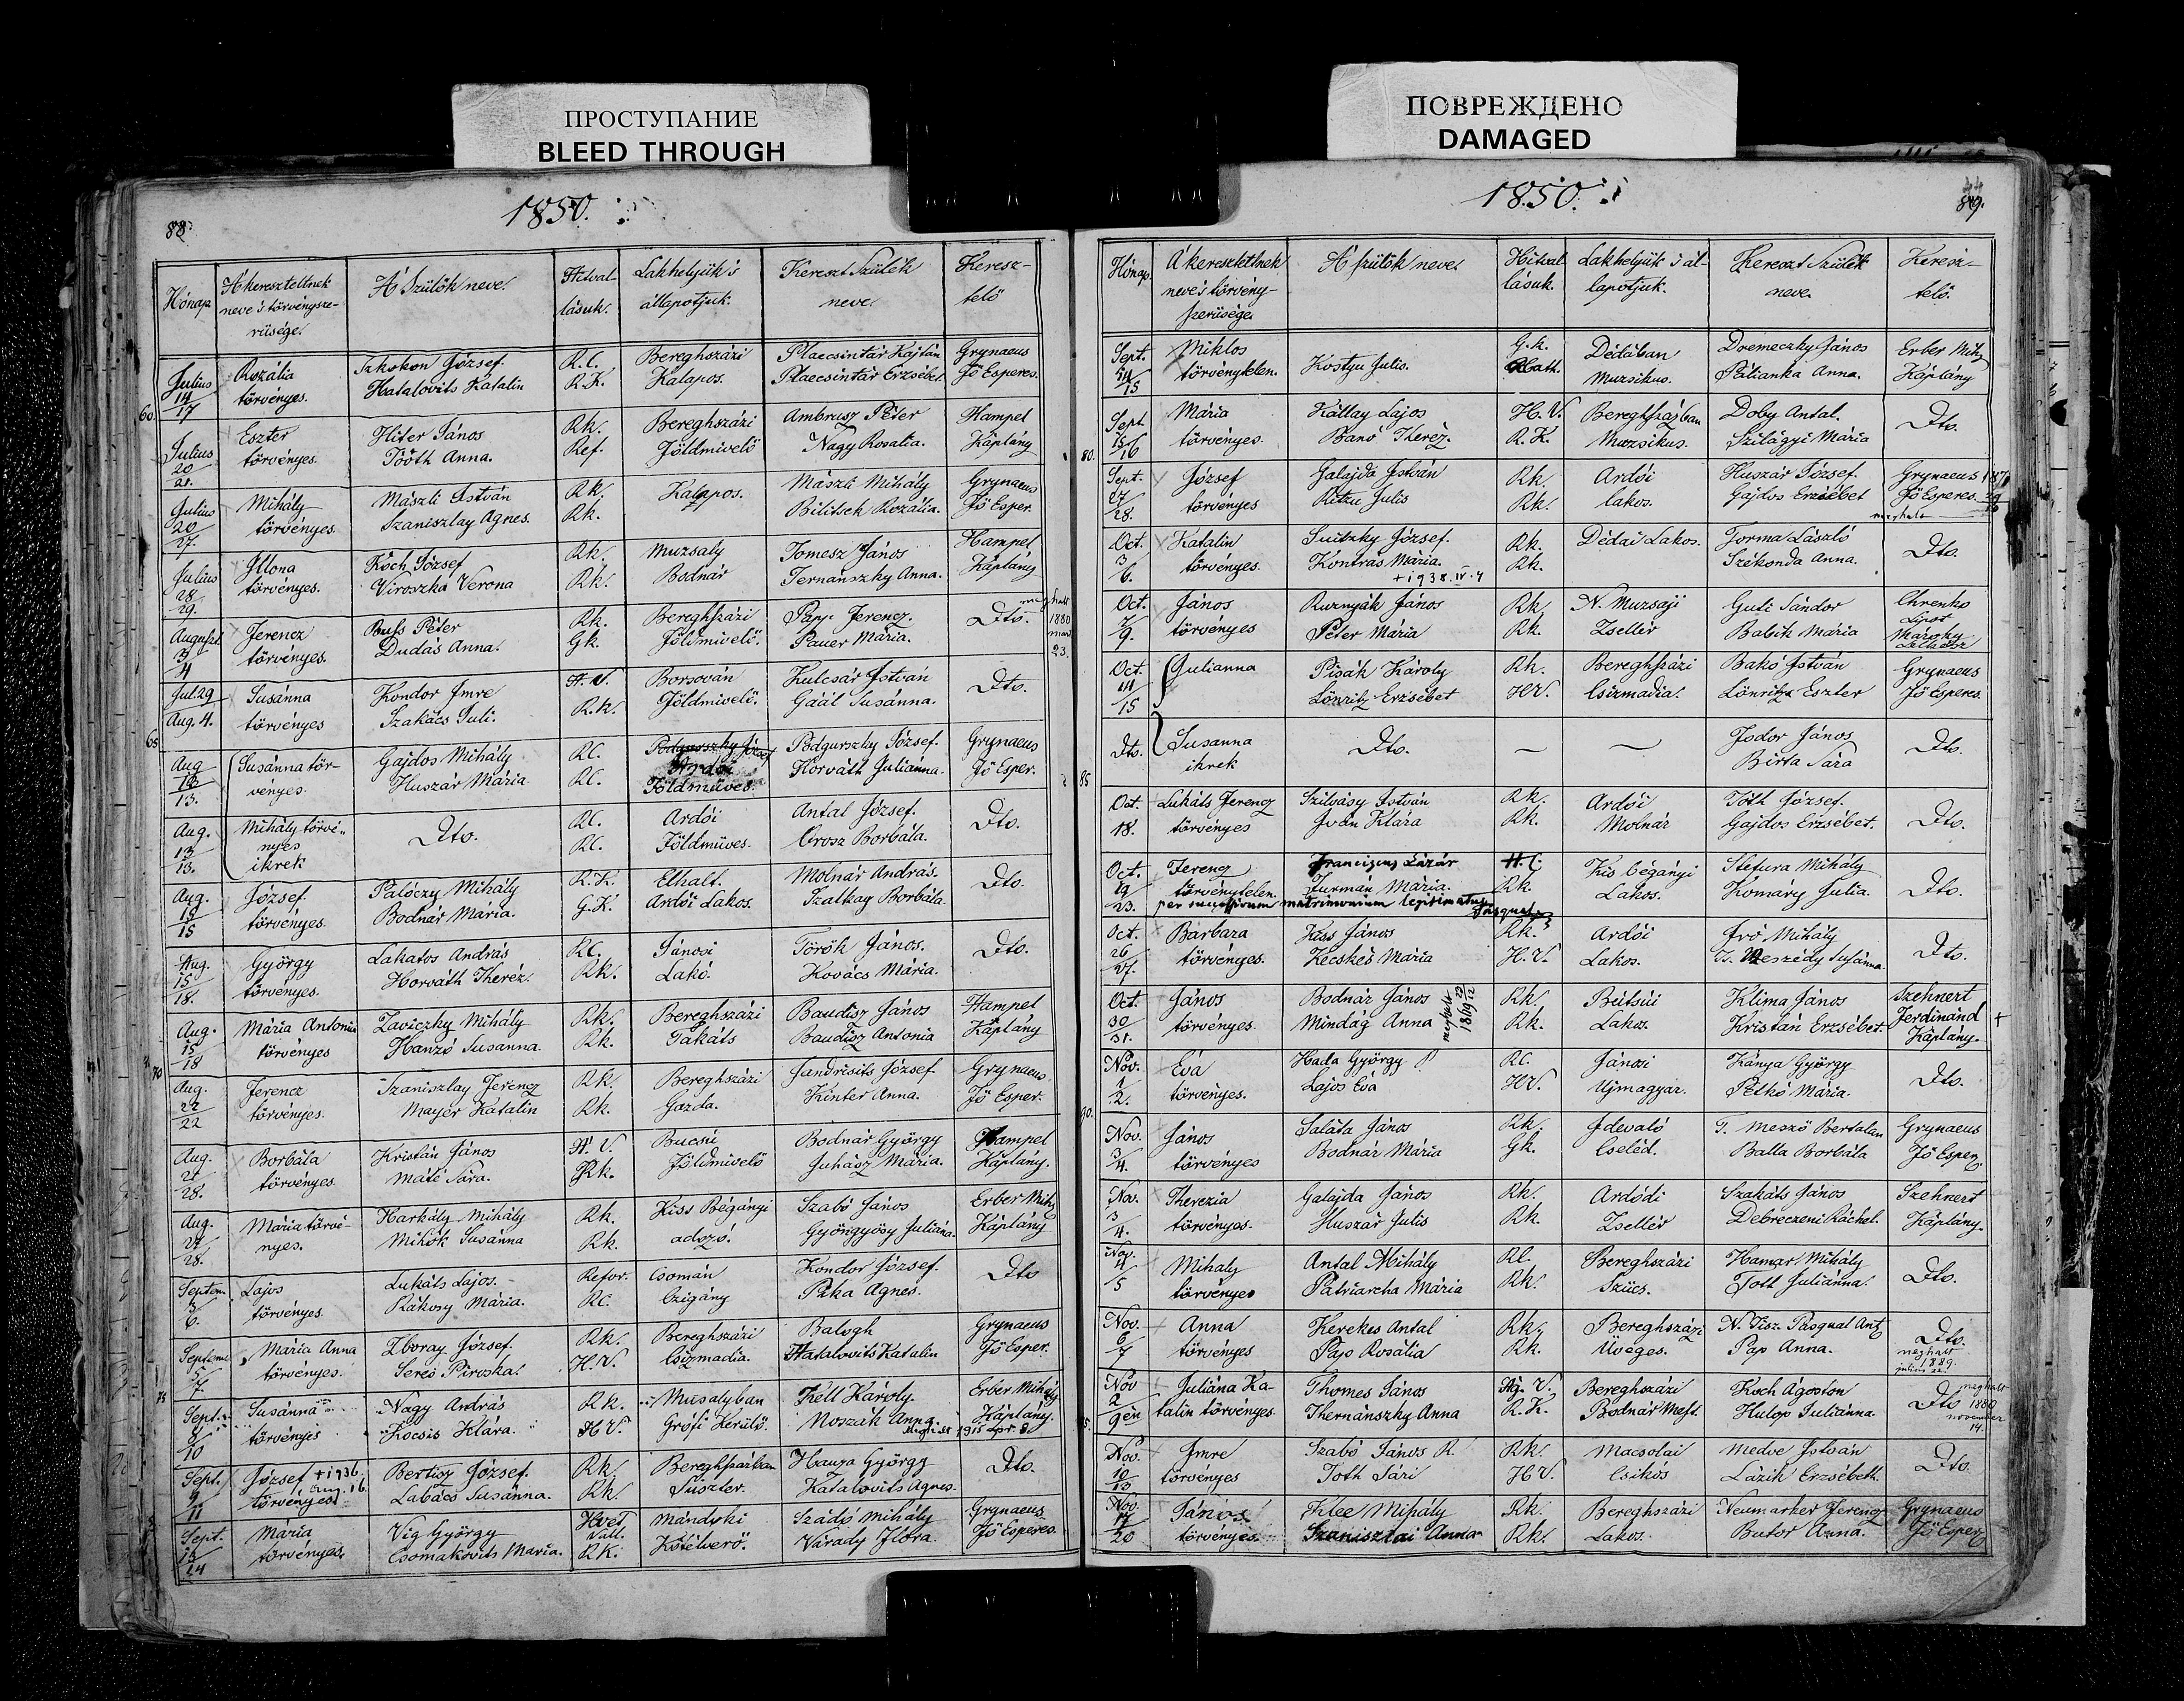 ПРОСТУПАНИЕ
BLEED THROUGH
ПОВРЕЖДЕНО
DAMAGED
88.
1850.
Hónap
A' kereszteltnek
neve 's törvénysze-
rüsége.
A' Szülők neve.
Hitval-
lásuk.
Lakhelyük 's
állapotjuk.
Kereszt Szülék
neve.
Keresz-
telő
Julius
14
17
Rozália
törvényes.
József.
Hatalovits Katalin
R.C.
R.K.
Bereghszázi
Kalapos.
Placsintár Kajtán
Placsintár Erzsébet.
Grynaeus
Jő Esperes.
60.
Julius
20
21.
Eszter
törvényes.
Hiter János
Tóóth Anna.
Rk.
Ref.
Bereghszázi
Földmivelő
Ambrusz Péter
Nagy Rosalia.
Hampel
Káplány
Julius
20
27.
Mihály
törvényes.
Mászli István
Szaniszlay Agnes.
Rk.
Rk.
Kalapos.
Mászli Mihály
Bilitsek Rozália.
Grynaeus
Jő Esper.
Julius
28
29.
Illona
törvényes.
Koch József
Viroszka Verona
Rk.
Rk.
Muzsaly
Bodnár
Tomesz János
Ternanszky Anna.
Hampel
Káplány
Auguszt.
3
4
Ferencz
törvényes.
Buss Péter
Dudás Anna.
Rk.
Gk.
Bereghszázi
Földmivelő.
Pap Ferencz.
Pauer Mária.
Dto.
meghalt
1880
mart
23.
Jul. 29
Aug. 4.
Susánna
törvényes
Kondor Imre
Szakács Juli.
H.V.
R.k.
Borsován
Földmivelő.
Kulcsár István
Gáál Susánna.
Dto.
65
Aug
13.
Susánna tör-
vényes.
Gajdos Mihály
Huszár Mária
RC.
RC.
Podgurszky József
Ardói
Földmüves.
Podgurszky József.
Horváth Juliánna.
Grynaeus
Jő Esper.
Aug.
13
13.
Mihály törvé-
nyes
ikrek
Dto.
RC.
RC.
Ardói
Földmüves.
Antal József.
Orosz Borbála.
Dto.
Aug.
15
József.
törvényes.
Palóczy Mihály
Bodnár Mária.
R.K.
G.K.
Elhalt.
Ardói Lakos.
Molnár András.
Szatkay Borbála.
Dto.
Aug.
15
18.
György
törvényes.
Lakatos András
Horváth Theréz.
RC.
Rk.
Jánosi
Lakó.
Török János.
Kovács Mária.
Dto.
Aug.
15
18
Mária Antonia
törvényes
Laviczky Mihály
Hanzó Susanna.
Rk.
Rk.
Bereghszázi
Takáts
Baudisz János
Baudisz Antonia
Hampel
Káplány
70
Aug.
22
22
Ferencz
törvényes.
Szaniszlay Ferencz
Mayer Katalin
Rk.
Rk.
Bereghszázi
Gazda.
Jandrisits József
Kinter Anna.
Grynaeus
Jő Esper.
Aug.
28.
Borbála
törvényes.
Kristán János
Máté Sára.
H.V.
Rk.
Bucsú
Földmivelő
Bodnár György
Juhász Mária.
Hampel
Káplány.
Aug.
27
28.
Mária törvé-
nyes.
Harkály Mihály
Mihók Susánna
Rk.
Rk.
Kiss Bégányi
adozó.
Szabó János
Gyöngyösy Juliána.
Erber Mih.
Káplány
Septem.
3
6.
Lajos
törvényes.
Lukáts Lajos.
Rákosy Mária.
Refor.
RC.
Csomán
Czigány
Kondor József.
Páka Agnes.
Dto
Septem.
5
7.
Mária Anna
törvényes.
Zboray József.
Seres Piroska.
Rk.
H.V.
Bereghszázi
Csizmadia.
Balogh
Hatalovits Katalin
Grynaeus
Jő Esper.
75
Sept.
8
10
Susánna
törvényes
Nagy András
Kocsis Klára.
Rk.
HV.
Musalyban
Grófi Kerülő.
Fell Károly.
Morzák Anna.
Erber Mihály
Káplány.
Megh. 1915 Apr. 8
Sept.
9
11
József +1936
Aug. 16
törvényes
Bertisz József.
Labács Susánna.
Rk.
Rk.
Bereghszázban
Suszter.
Hauza György
Katalovits Agnes.
Dto.
Sept.
13
14
Mária
törvényes.
Vig György
Csomakovits Maria.
Hvet
Vall.
RK.
Mándoki
Kötélverő.
Szádó Mihály
Várady Flóra.
Grynaeus
Jő Esperes.
1850.
44
89.
Hónap.
A' kereszteltnek
neve 's törvény-
szerüsége
A' szülők neve.
Hitval
lásuk.
Lakhelyük 's ál-
lapotjuk.
Kereszt Szülék
neve.
Keresz-
telő.
Sept.
14
15
Miklos
törvénytelen.
Kostyu Julis.
G.k.
Dédában
Muzsikus.
Drémeczky János
Pálianka Anna.
Erber Mih
Káplány
Sept
15
16
Mária
törvényes.
Kállay Lajos
Banó Theréz.
H.V.
R.K.
Bereghszázban
Muzsikus.
Doby Antal.
Szilágyi Mária
Dto.
80.
Sept.
27
28.
József
törvényes
Galajda István
Ritzu Julis
Rk.
Rk.
Ardói
lakos.
Huszár József.
Gajdos Erzsébet
Grynaeus
Jő Esperes.
meghalt
Oct.
3
6.
Katalin
törvényes.
Suitzky József.
Kontrás Mária.
+1938.IV.4
Rk.
Rk.
Dédai Lakos.
Torma László
Székonda Anna.
Dto.
Oct.
7
9.
János
törvényes
Ruznyák János
Péter Mária
Rk.
Rk.
N. Muzsaji
Zsellér
Guti Sándor
Babik Mária
Chrenko
Lipot
Oct
14
15
Julianna
Pisák Károly
Lönritz Erzsébet
Rk.
HV.
Bereghszázi
Csizmadia.
Bakó István
Lönritz Eszter
Grynaeus
Jő Esperes.
Dto.
Susanna
ikrek
Dto.
—
—
Fodor János
Birta Sára
Dto.
85
Oct.
18.
Lukáts Ferencz
törvényes
Szilvásy István
Iván Klára
Rk.
Rk.
Ardói
Molnár
Tóth József.
Gajdos Erzsébet.
Dto.
Oct.
19
23.
Ferencz
törvénytelen.
Franciscus Lázár
Furmán Mária.
per successivum matrimonium legitimatus
Pásquál
H.C.
Rk.
Kis bégányi
Lakos.
Stefura Mihály
Komary Julia.
Dto.
Oct.
26
27.
Barbara
törvényes.
Kiss János
Kecskés Mária
Rk.
H.V.
Ardói
Lakos.
Iró Mihály
Ts. Meszédy Susánna.
Dto.
Oct.
30
31.
János
törvényes.
Bodnár János
Mindág Anna
meghalt
1869
Rk.
Rk.
Bétsúi
Lakos.
Klima János
Kristán Erzsébet.
Szehnert
Ferdinánd
Káplány.
Nov.
1
2.
Éva
törvényes.
Hada György
Lajos Éva
RC.
HV.
Jánosi
Ujmagyar.
Kánya György
Petkó Mária.
Dto.
90.
Nov.
3
4.
János
törvényes
Saláta János
Bodnár Mária
Rk.
Gk.
Idevaló
Cseléd.
T. Meszö Bertalan
Balla Borbála
Grynaeus
Jő Esper.
Nov.
3
4.
Therezia
törvényes.
Galajda János
Huszár Julis
Rk.
Rk.
Ardódi
Zsellér
Szakáts János
Debreczeni Ráchel.
Szehnert
Káplány.
Nov.
4
5
Mihaly
törvényes
Antal Mihály
Pátriarcha Mária
RC.
Rk.
Bereghszázi
Szücs.
Hamar Mihály
Toth Julianna.
Dto.
Nov.
6
7
Anna
törvényes
Kerekes Antal
Pajo Rosália
Rk.
Rk.
Bereghszázi
Üveges.
N. Tisz. Pásqual Ant
Pap Anna.
Dto.
meghalt
1889.
julius 22.
Nov
2
9én
Juliána Ka-
talin törvényes.
Thomes János
Thernánszky Anna
Ág. V.
R.K.
Bereghszázi
Bodnár Mest.
Koch Agoston
Hulop Juliánna.
Dto
meghalt
1880
november
14.
Nov.
10
13
Imre
törvényes
Szabó János R.
Toth Sári
Rk.
HV.
Macsolai
Csikós
Medve István
Lázik Erzsébeth.
Dto.
Nov.
17
20
János
törvényes.
Klee Mihály
Szanisztai Anna
Rk.
Rk.
Bereghszázi
Lakos.
Neumarker Ferencz
Butor Anna.
Grynaeus
Jő Esper